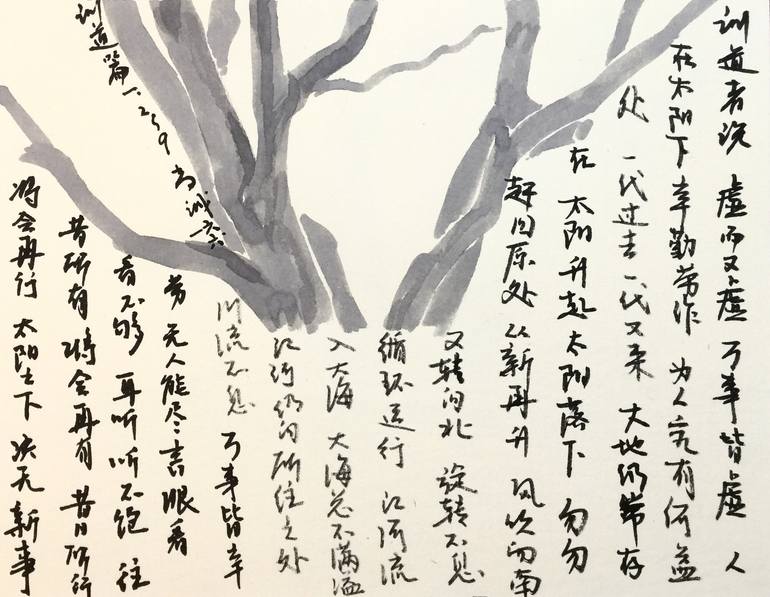 训道者说 虚而又虚 万事皆虚 人
在太阳下辛勤劳作 为人究有何益
处 一代过去一代又来 大地仍常存
在 太阳升起 太阳落下 匆匆
赶回原处 从新再升 风吹向南
又转向北 旋转不息
循环运行 江河流
入大海 大海总不满溢
江河仍向所往之处
川流不息 万事皆辛
劳 无人能尽言 眼看
看不够 耳听 听不饱 往
昔所有 将会再有 昔日所行
将会再行 太阳之下 决无新事
训道篇一.2~9